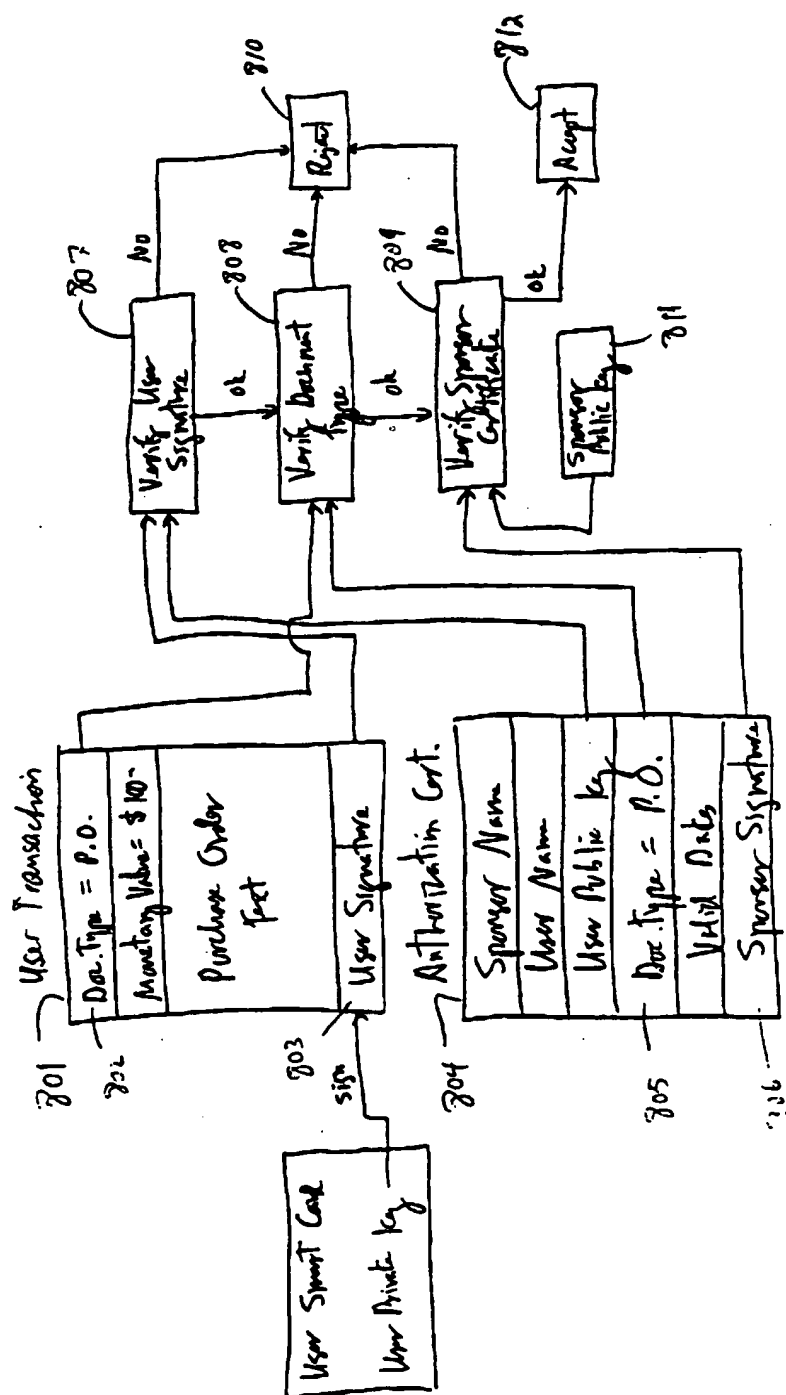 User Smart Card
User Private Key
sign
801
User Transaction
802
Doc. Type = P.O.
Monetary Value =
Purchase Order
Text
803
User Signature
804
Authorization Cert.
Sponsor Name
User Name
User Public Key
805
Doc. Type = P.O.
Valid Dates
Sponsor Signature
807
Verify User
Signature
No
ok
808
Verify Document
Type
No
ok
809
Verify Sponsor
Certificate
No
ok
810
Reject
Sponsor
Public Key
811
812
Accept